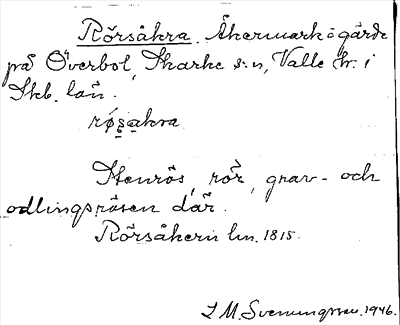 Rörsåkra. Åkermark o gärde
på Överbol, Skarke s:n, Valle hr. i
Skb. län.
røs̱a̱kra
Stenrös, rör, grav- och
odlingsrösen där.
Rörsåkern lm. 1815.
S M. Svenungsson. 1946.